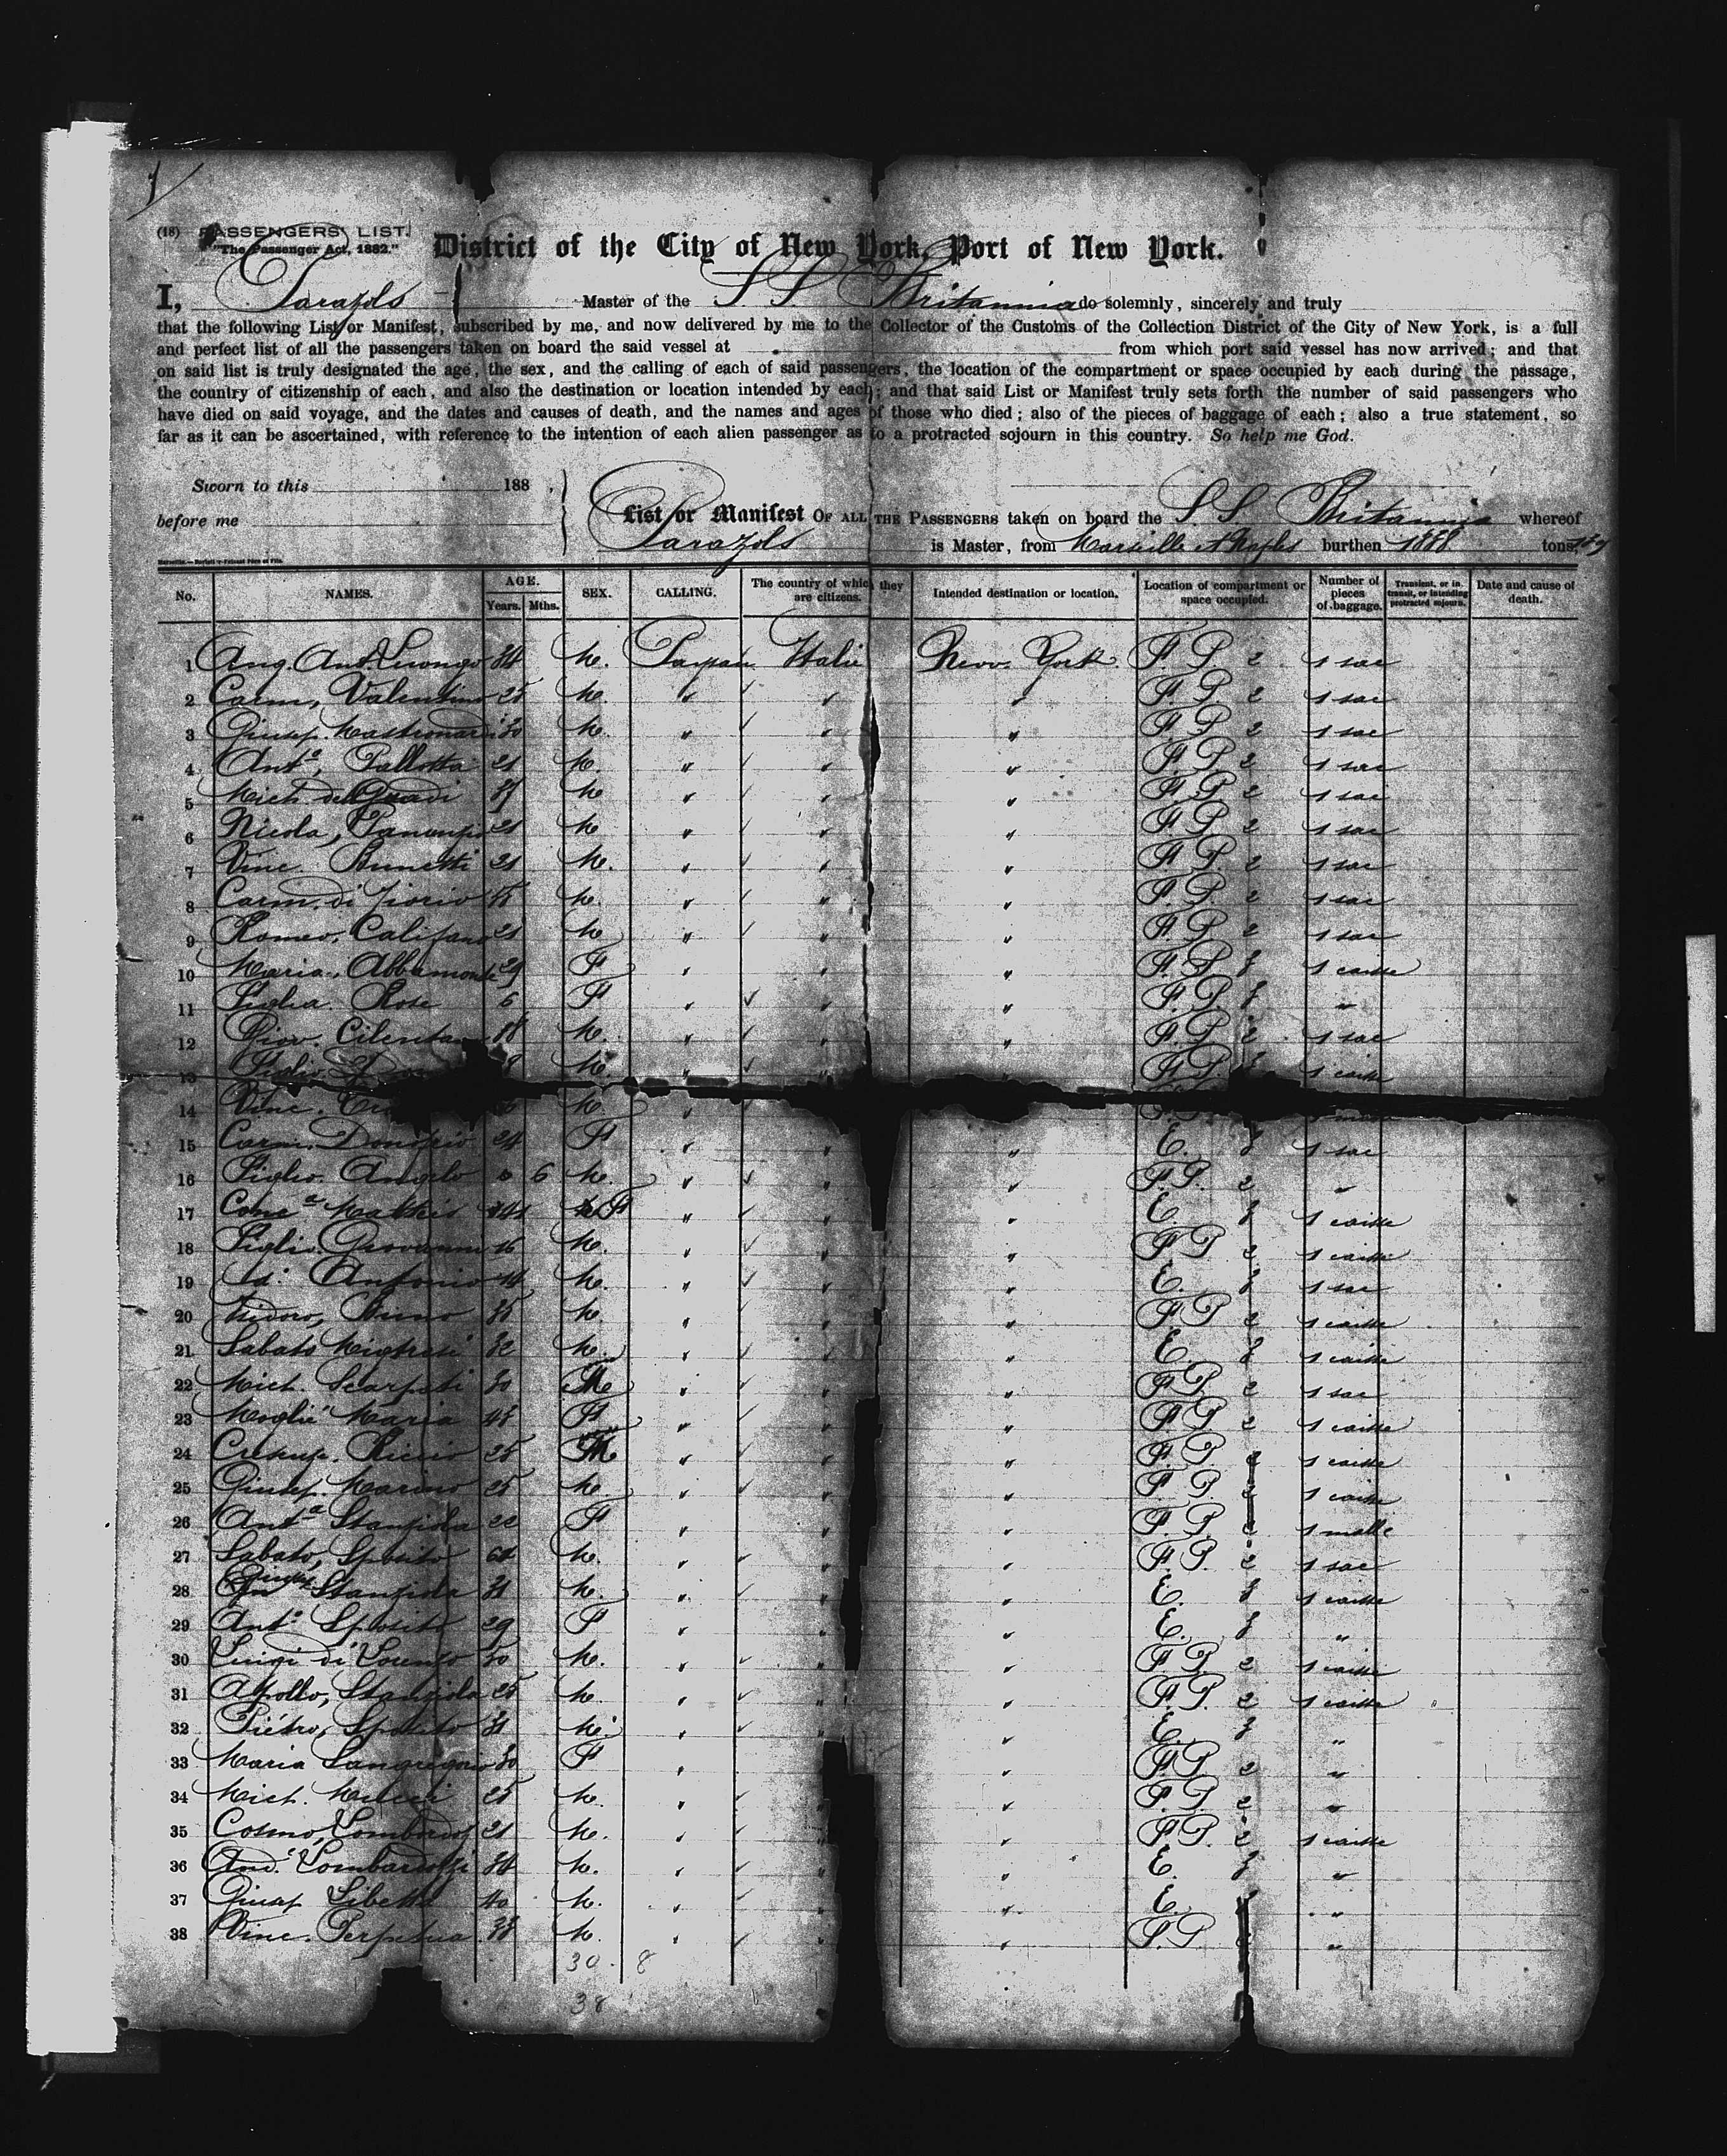 (18) PASSENGERS LIST.
"The Passenger Act, 1882."
District of the City of New York, Port of New York.
I, Master of the S S Britannia do solemnly, sincerely and truly
that the following List or Manifest, subscribed by me, and now delivered by me to the Collector of the Customs of the Collection District of the City of New York, is a full
and perfect list of all the passengers taken on board the said vessel at from which port said vessel has now arrived; and that
on said list is truly designated the age, the sex, and the calling of each of said passengers, the location of the compartment or space occupied by each during the passage,
the country of citizenship of each, and also the destination or location intended by each; and that said List or Manifest truly sets forth the number of said passengers who
have died on said voyage, and the dates and causes of death, and the names and ages of those who died; also of the pieces of baggage of each; also a true statement, so
far as it can be ascertained, with reference to the intention of each alien passenger as to a protracted sojourn in this country. So help me God.
Sworn to this 188 ,
before me
List or Manifest OF ALL THE PASSENGERS taken on board the S S Britannia whereof
is Master, from Marseille et Naples burthen 1888 tons
No. NAMES. AGE. Years. Mths. SEX. CALLING. The country of which they are citizens. Intended destination or location. Location of compartment or space occupied. Number of pieces of baggage. Transient, or in transit, or intending protracted sojourn. Date and cause of death.
1 Ang. Ant. Luongo 34 M. Paysan Italie New York F. P. 2 1 sac
2 Carm, Valentino 25 M. " " " F P 2 1 sac
3 Giusep. Mastronardi 30 M. " " " F P 2 1 sac
4 Ant°, Pallotta 21 M " " " F P 2 1 sac
5 Mich. M " " " F P 2 1 sac
6 Nicola, 21 M " " " F P 2 1 sac
7 Vinc. Brunetti 21 M. " " " F P. 2 1 sac
8 Carm. di Fiorio M. " " " F P. 2 1 sac
9 Romeo, Califano 21 M " " " F. P. 2 1 sac
10 Maria, Abbamonte 29 F " " " F. P. 3 1 caisse
11 Figlia Rose 6 F " " " F. P. 3 "
12 Giov. Cilentano M. " " " F. P. 2 1 sac
13 Figlio M. " " " F P 3 1 caisse
14 Vinc. M. "
15 Carm. Donofrio 24 F " " " E. 3 1 sac
16 Figlio Angelo 0 6 M. " " " F. P. 2 "
17 F " " " E. 3 1 caisse
18 Figlio Giovanni 16 M. " " " F P 2 1 caisse
19 id. Antonio 14 M. " " " E. 3 1 sac
20 Isidoro, Bruno 35 M. " " " F P 2 1 caisse
21 Sabato 32 M. " " " E. 3 1 caisse
22 Mich. Scarpati 30 M " " " F P. 2 1 sac
23 Moglie Maria 45 F " " " F P 2 1 caisse
24 Riccio 25 M " " " F. P 2 1 caisse
25 Giusep. Marino 25 M. " " " F. P 2 1 caisse
26 Antª Stanziola 22 F " " " F. P. 2 1 malle
27 Sabato, Sposito 64 M. " " " F P. 2 1 sac
28 Giusep Stanziola 31 M. " " " E. 3 1 caisse
29 Antª Sposito 29 F " " " E. 3 "
30 Luigi di Lorenzo 50 M. " " " F P. 2 1 caisse
31 Apollo, Stanziola 25 M. " " " F. P. 2 1 caisse
32 Piétro, Sposito 31 M. " " " E. 3 "
33 Maria Sangregorio 30 F " " F. P. 2 "
34 Mich. 25 M. " " " F. P. 2 "
35 Cosmo, Lombardozzi 21 M. " " " F P. 2 1 caisse
36 And. Lombardozzi 34 M. " " " E. 3 "
37 Giusep Libetti 40 M. " " " E. "
38 Vinc. Perpetua 38 M. " " " F. P. "
30. 8
38